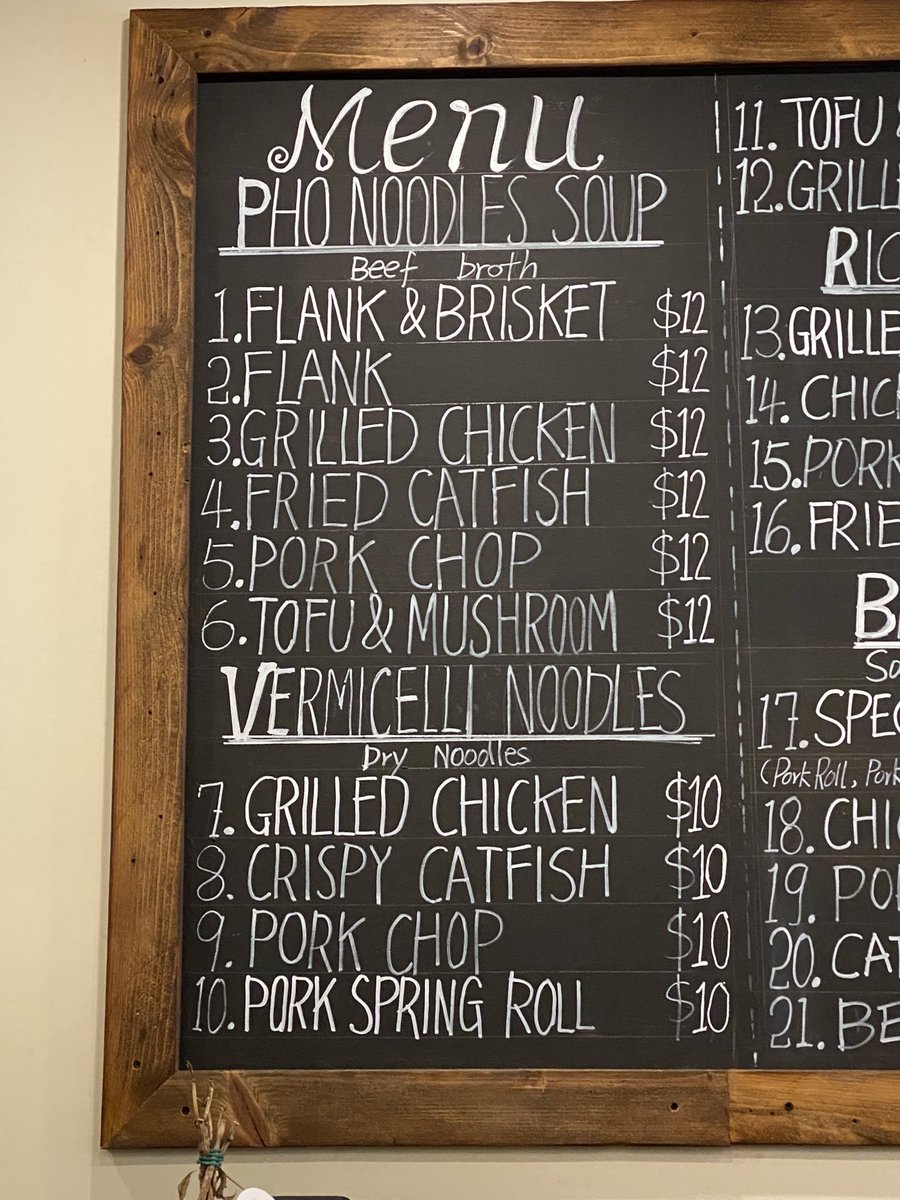 Menu
PHO NOODLES SOUP
Beef broth
1. FLANK & BRISKET $12
2. FLANK $12
3. GRILLED CHICKEN $12
4. FRIED CATFISH $12
5. PORK CHOP $12
6. TOFU & MUSHROOM $12
VERMICELLI NOODLES
Dry Noodles
7. GRILLED CHICKEN $10
8. CRISPY CATFISH $10
9. PORK CHOP $10
10. PORK SPRING ROLL $10
11. TOFU
12. GRILLE
RIC
13. GRILLE
14. CHIC
15. PORK
16. FRIE
B
So
17. SPEC
(Pork Roll, Pork
18. CHI
19. PO
20. CAT
21. BE